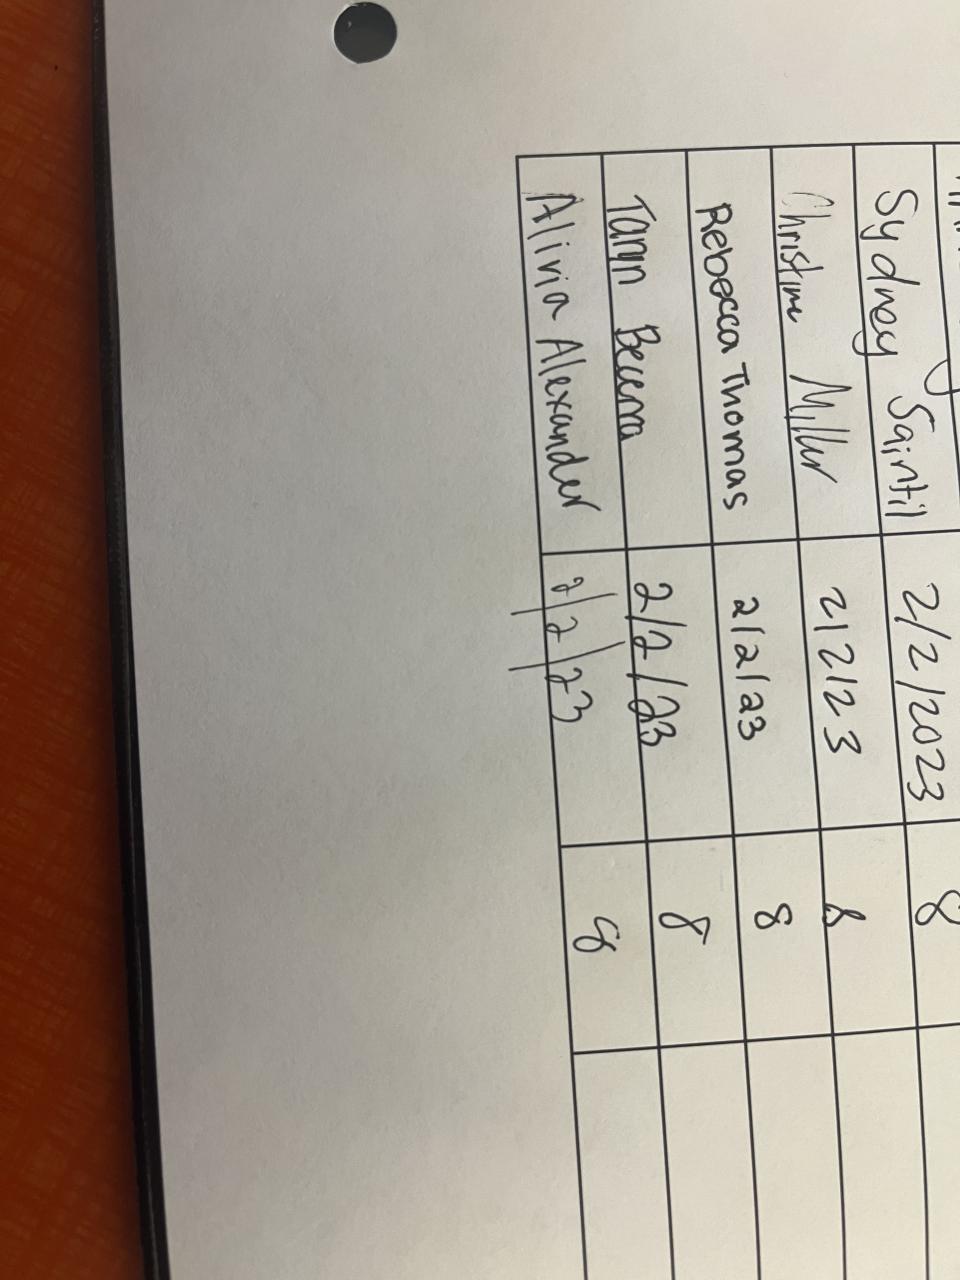 Sydney Saintil 2/2/2023 8
Christine Miller 2/2/23 8
Rebecca Thomas 2/2/23 8
Taryn Becerra 2/2/23 8
Alivia Alexander 2/2/23 8